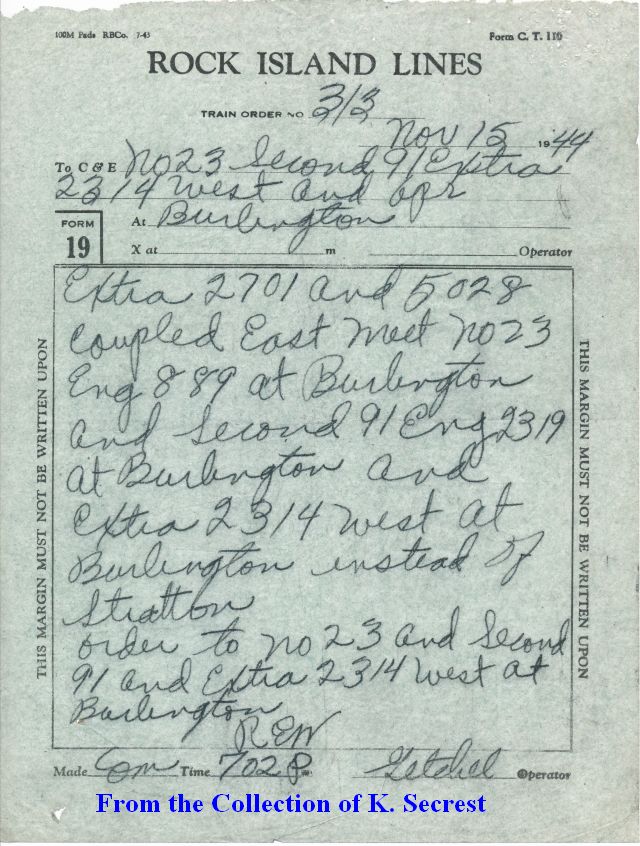 100M Pads RBCo. 7-43
Form C. T. 110
ROCK ISLAND LINES
TRAIN ORDER NO 313
Nov 15 1944
To C & E No 23 Second 91 Extra
2314 West and opr
At Burlington
FORM
19
X at m Operator
Extra 2701 and 5028
coupled East meet No 23
Eng 889 at Burlington
and Second 91 Eng 2319
at Burlington and
Extra 2314 West at
Burlington instead of
Stratton
order to No 23 and Second
91 and Extra 2314 West at
Burlington
REW
Made Com Time 702 P m Getchel Operator
THIS MARGIN MUST NOT BE WRITTEN UPON
THIS MARGIN MUST NOT BE WRITTEN UPON
From the Collection of K. Secrest